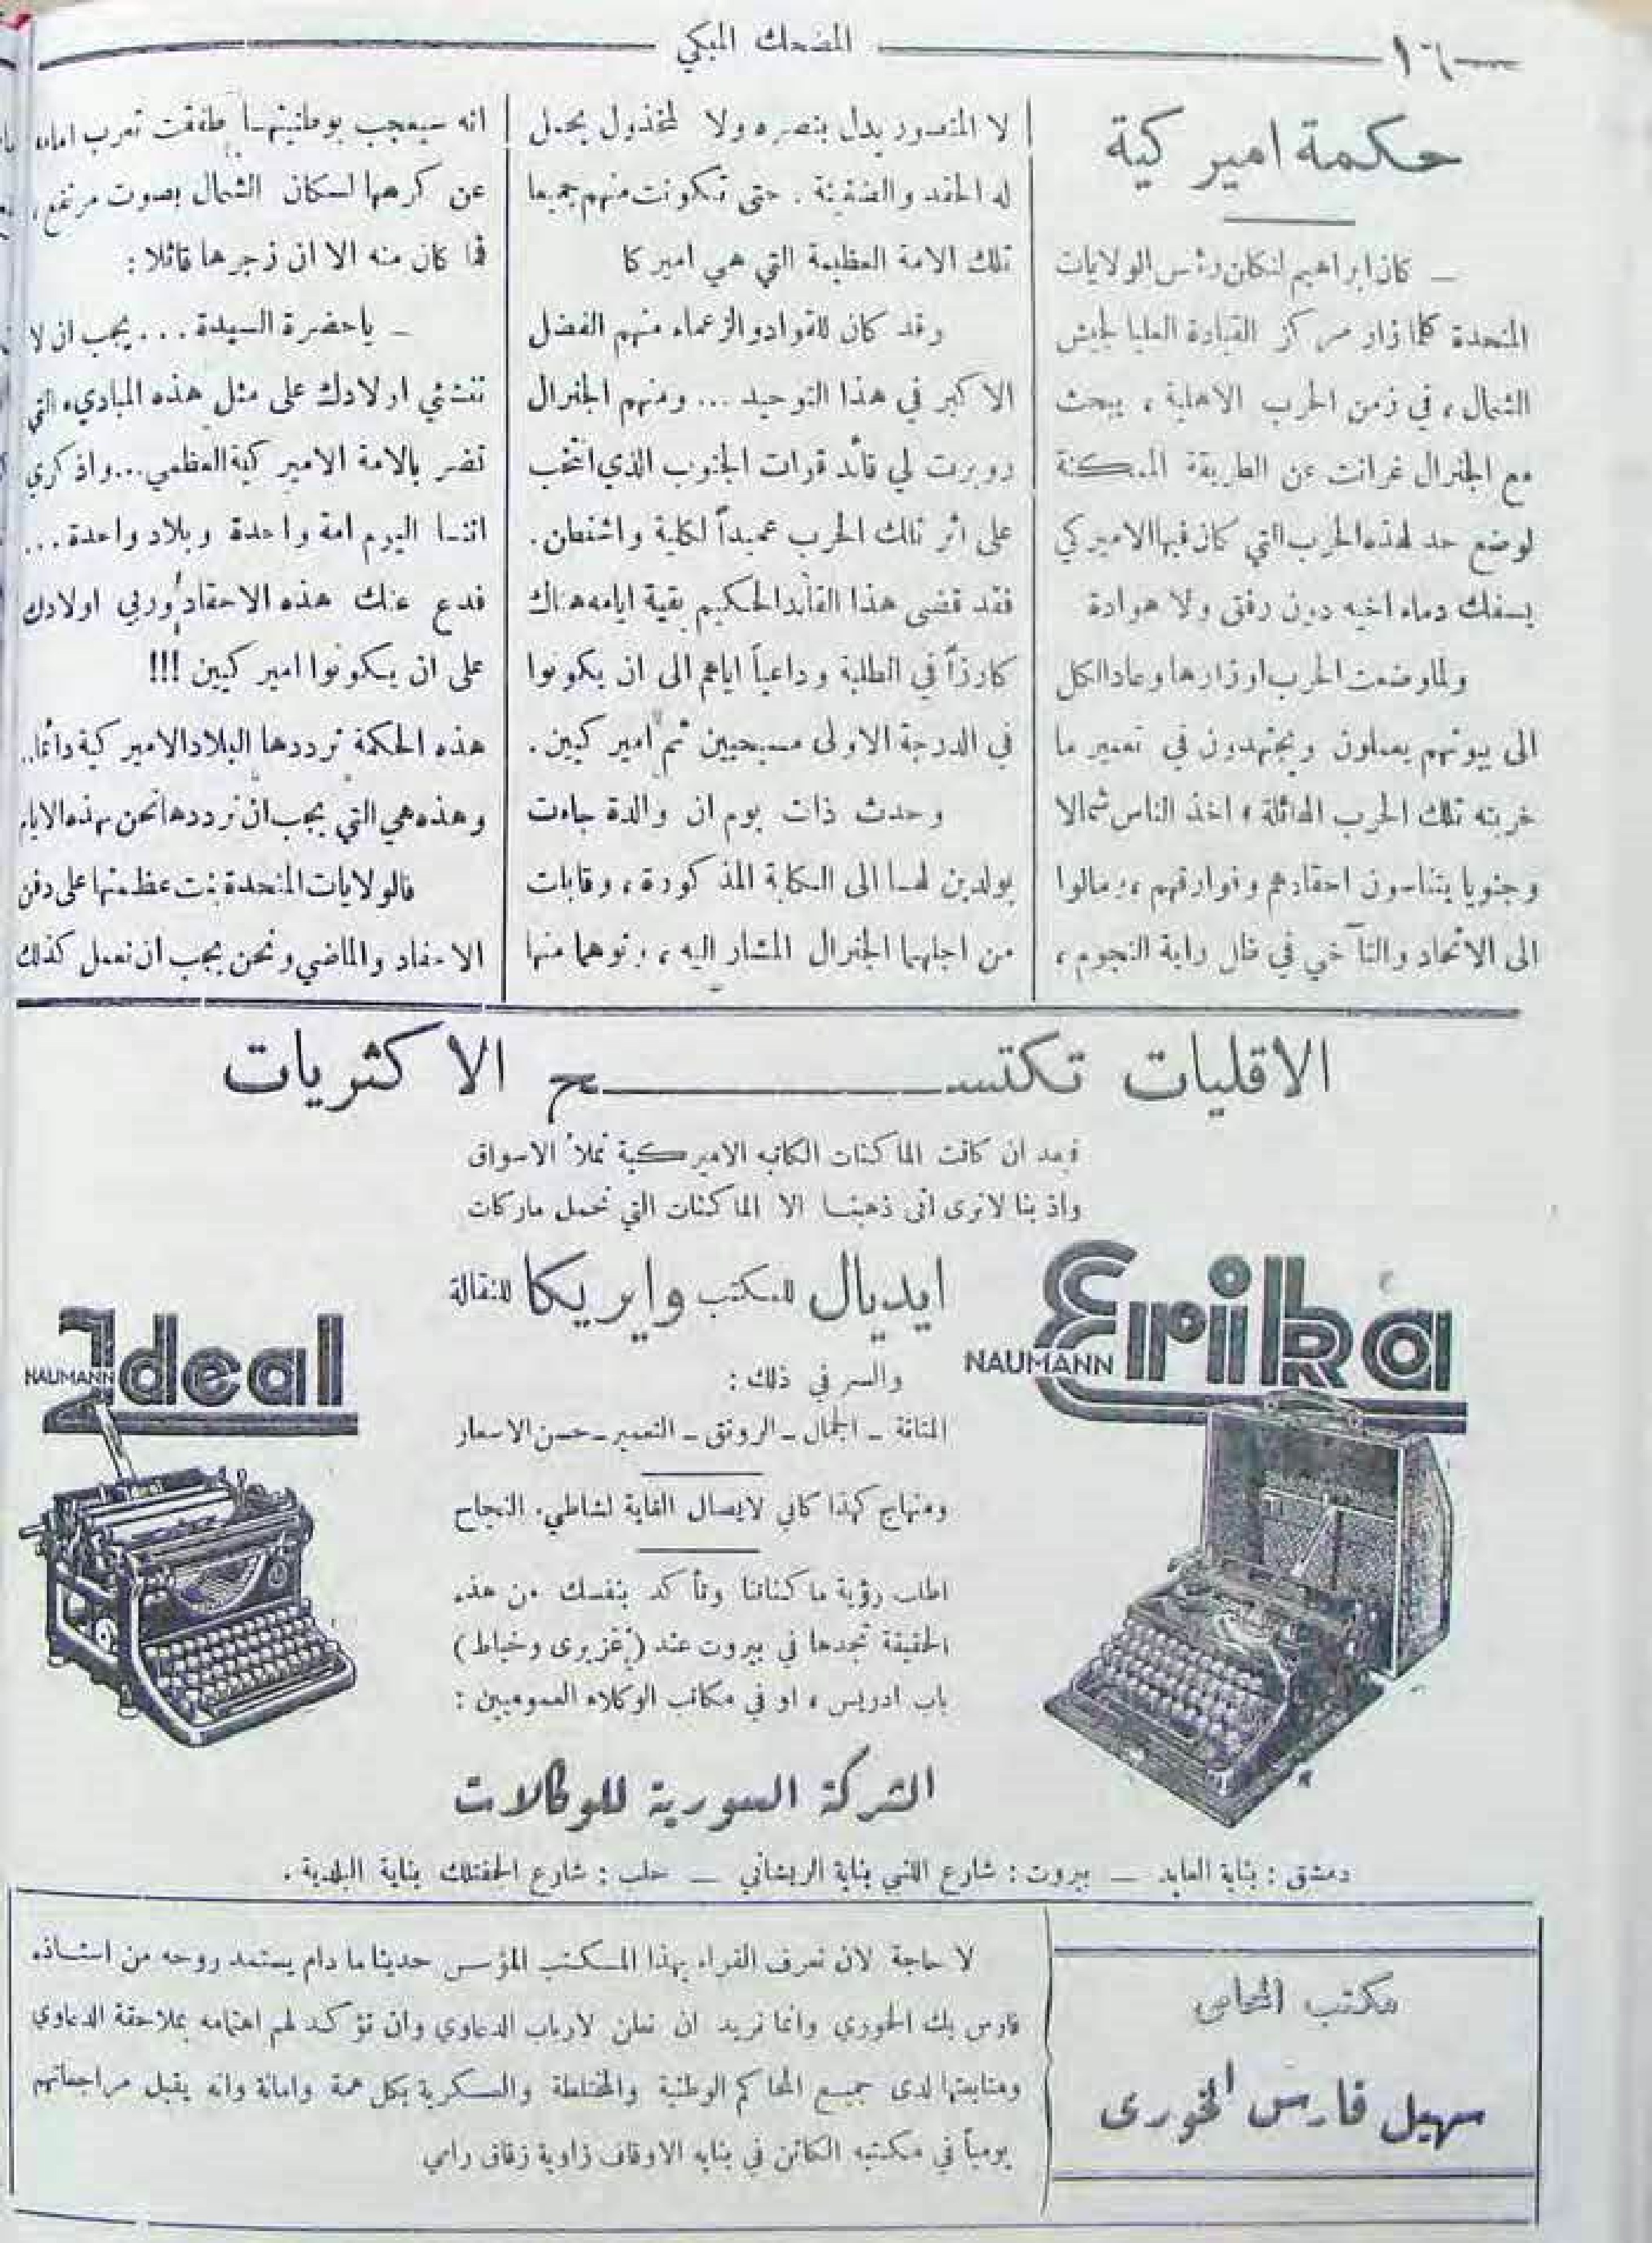 ١٦
المضحك المبكي
حكمة اميركية
ـ كان ابراهيم لنكلن رئيس الولايات
المتحدة كلما زار مركز القيادة العليا لجيش
الشمال ، في زمن الحرب الاهلية ، يبحث
مع الجنرال غرانت عن الطريقة الممكنة
لوضع حد لهذه الحرب التي كان فيها الاميركي
يسفك دماء اخيه دون رفق ولا هوادة
ولما وضعت الحرب اوزارها وعاد الكل
الى بيوتهم يعملون ويجتهدون في تعمير ما
خربته تلك الحرب الهائلة ، اخذ الناس شمالا
وجنوبا يتناسون احقادهم وفوارقهم ، ومالوا
الى الاتحاد والتآخي في ظل راية النجوم ،
لا المنصور يدل بنصره ولا المخذول يحمل
له الحقد والضغينة . حتى تكونت منهم جميعا
تلك الامة العظيمة التي هي اميركا
وقد كان للقواد والزعماء منهم الفضل
الاكبر في هذا التوحيد ... ومنهم الجنرال
روبرت لي قائد قوات الجنوب الذي انتخب
على اثر تلك الحرب عميداً لكلية واشنطن .
فقد قضى هذا القائد الحكيم بقية ايامه هناك
كارزاً في الطلبة وداعياً اياهم الى ان يكونوا
في الدرجة الاولى مسيحيين ثم اميركيين .
وحدث ذات يوم ان والدة جاءت
بولدين لهـا الى الكلية المذكورة ، وقابلت
من اجلهما الجنرال المشار اليه ، وتوهما منها
انه سيعجب بوطنيتهـا طفقت تعرب امامه
عن كرهها لسكان الشمال بصوت مرتفع ،
فما كان منه الا ان زجرها قائلا :
ـ يا حضرة السيدة ... يجب ان لا
تنشئي اولادك على مثل هذه المباديء التي
تضر بالامة الاميركية العظمى ... واذكري
اننـا اليوم امة واحدة وبلاد واحدة ...
فدع عنك هذه الاحقاد وربي اولادك
على ان يكونوا اميركيين !!!
هذه الحكمة ترددها البلاد الاميركية دائما ..
وهذه هي التي يجب ان نرددها نحن بهذه الايام
فالولايات المتحدة بنت عظمتها على دفن
الاحقاد والماضي ونحن يجب ان نعمل كذلك
الاقليات تكتســـــح الاكثريات
فبعد ان كانت الماكنات الكاتبه الاميركية تملأ الاسواق
واذ بنا لا نرى انى ذهبنـا الا الماكنات التي تحمل ماركات
ايديال للمكتب وايريكا للنقالة
NAUMANN Erika
NAUMANN Ideal
والسر في ذلك :
المتانة ـ الجمال ـ الرونق ـ التعمير ـ حسن الاسعار
ومنهاج كهذا كافي لايصال الغاية لشاطيء النجاح
اطلب رؤية ماكناتنا وتأكد بنفسك من هذه
الحقيقة تجدها في بيروت عند (عزيزى وخياط)
باب ادريس ، او في مكاتب الوكلاء العموميين :
الشركة السورية للوكالات
دمشق : بناية العابد ـ بيروت : شارع اللنبي بناية الريشاني ـ حلب : شارع الجفتلك بناية البلدية .
مكتب المحامي
سهيل فارس الخورى
لا حاجة لان نعرف القراء بهذا المـكتب المؤسس حديثا ما دام يستمد روحه من استـاذه
فارس بك الخوري وانما نريد ان نعلن لارباب الدعاوي وان نؤكد لهم اهتمامه بملاحقة الدعاوي
ومتابعتها لدى جميع المحاكم الوطنية والمختلطة والعسكرية بكل همة وامانة وانه يقبل مراجعاتهم
يومياً في مكتبه الكائن في بنايه الاوقاف زاوية زقاق رامي